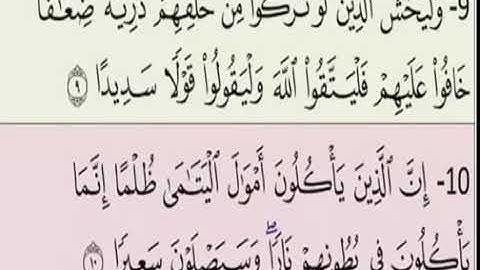 9- وَلْيَخْشَ ٱلَّذِينَ لَوْ تَرَكُوا۟ مِنْ خَلْفِهِمْ ذُرِّيَّةً ضِعَـٰفًا
خَافُوا۟ عَلَيْهِمْ فَلْيَتَّقُوا۟ ٱللَّهَ وَلْيَقُولُوا۟ قَوْلًا سَدِيدًا ﴿٩﴾
10- إِنَّ ٱلَّذِينَ يَأْكُلُونَ أَمْوَٰلَ ٱلْيَتَـٰمَىٰ ظُلْمًا إِنَّمَا
يَأْكُلُونَ فِى بُطُونِهِمْ نَارًا ۖ وَسَيَصْلَوْنَ سَعِيرًا ﴿١٠﴾